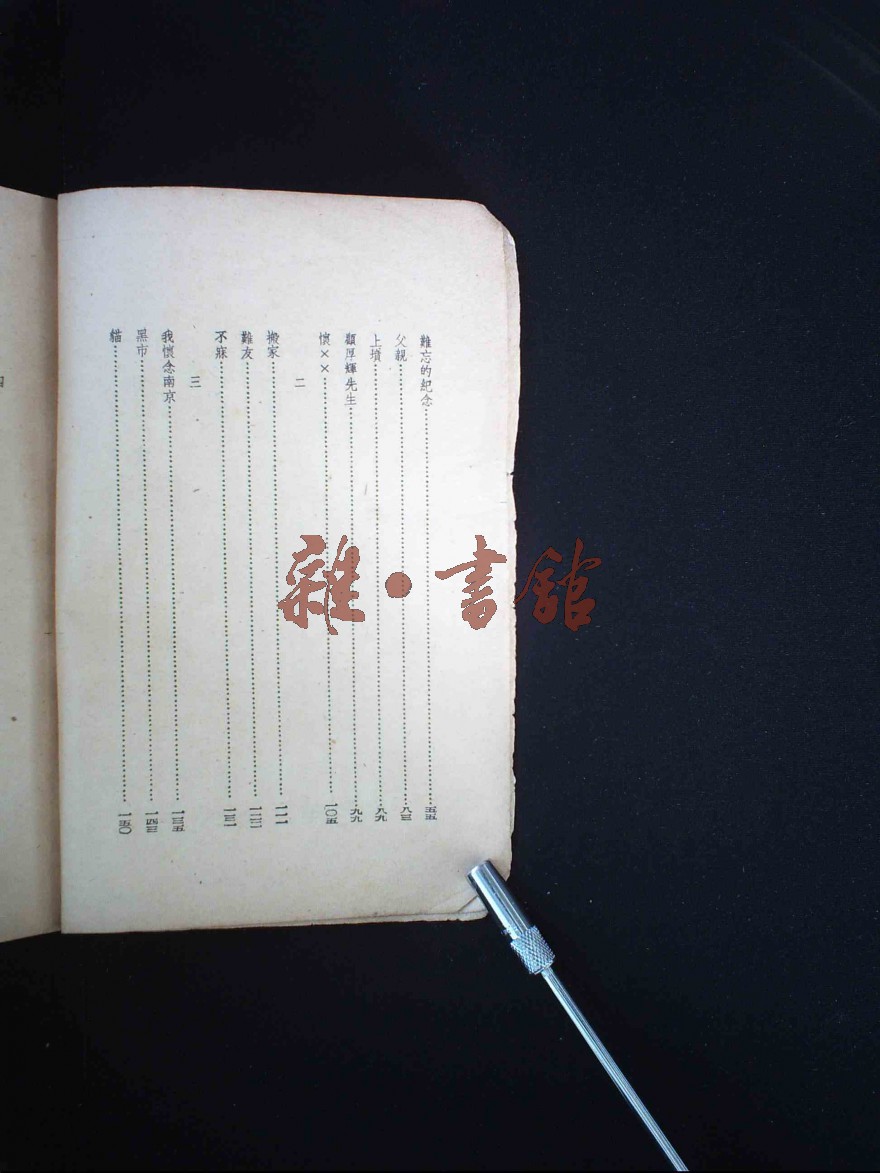 難忘的紀念……五五
父親……八三
上墳……八九
顧厚輝先生……九九
懷××……一〇五
二
搬家……一一一
難友……一二二
不寐……一三一
三
我懷念南京……一三五
黑市……一四三
貓……一五〇
四
雜·書館